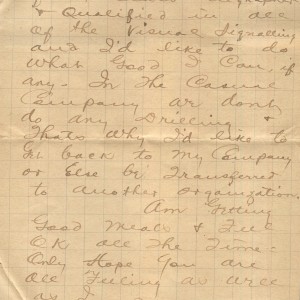 & Qualified in all
of the Visual Signalling
and I'd like to do
What Good I Can, if
any. In The Casual
Company we dont
do any Drilling &
Thats Why I'd like to
Get back to My Company
or Else be Transferred
to another organization.
Am Getting
Good Meals & Feel
OK all The Time-
Only Hope You are
all Feeling as well